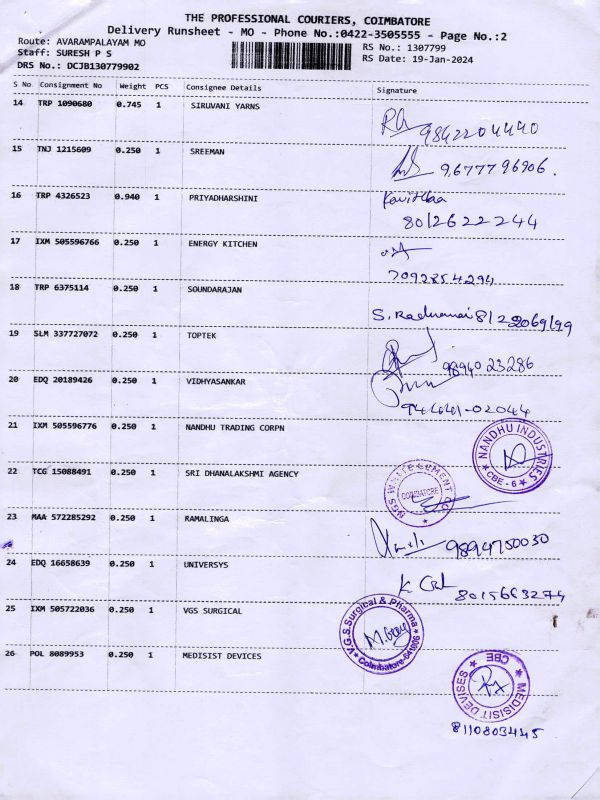 THE PROFESSIONAL COURIERS, COIMBATORE
Delivery Runsheet - MO - Phone No.:0422-3505555 - Page No.:2
Route: AVARAMPALAYAM MO
RS No.: 1307799
Staff: SURESH P S
RS Date: 19-Jan-2024
DRS No.: DCJB130779902
S No Consignment No Weight PCS Consignee Details Signature
14 TRP 1090680 0.745 1 SIRUVANI YARNS
9842204440
15 TNJ 1215609 0.250 1 SREEMAN
9677796906.
16 TRP 4326523 0.940 1 PRIYADHARSHINI Kavithaa
8012622244
17 IXM 505596766 0.250 1 ENERGY KITCHEN
7092854294
18 TRP 6375114 0.250 1 SOUNDARAJAN
S.
19 SLM 337727072 0.250 1 TOPTEK
9894023286
20 EDQ 20189426 0.250 1 VIDHYASANKAR
94441-02044
21 IXM 505596776 0.250 1 NANDHU TRADING CORPN
NANDHU INDUSTRIES
* CBE - 6 *
22 TCG 15088491 0.250 1 SRI DHANALAKSHMI AGENCY
COIMBATORE
23 MAA 572285292 0.250 1 RAMALINGA
9894750030
24 EDQ 16658639 0.250 1 UNIVERSYS
K
8015663274
25 IXM 505722036 0.250 1 VGS SURGICAL
V.G.S.Surgical & Pharma
* Coimbatore-641006 *
26 POL 8089953 0.250 1 MEDISIST DEVICES
MEDISIST DEVISES
* CBE *
8110803445